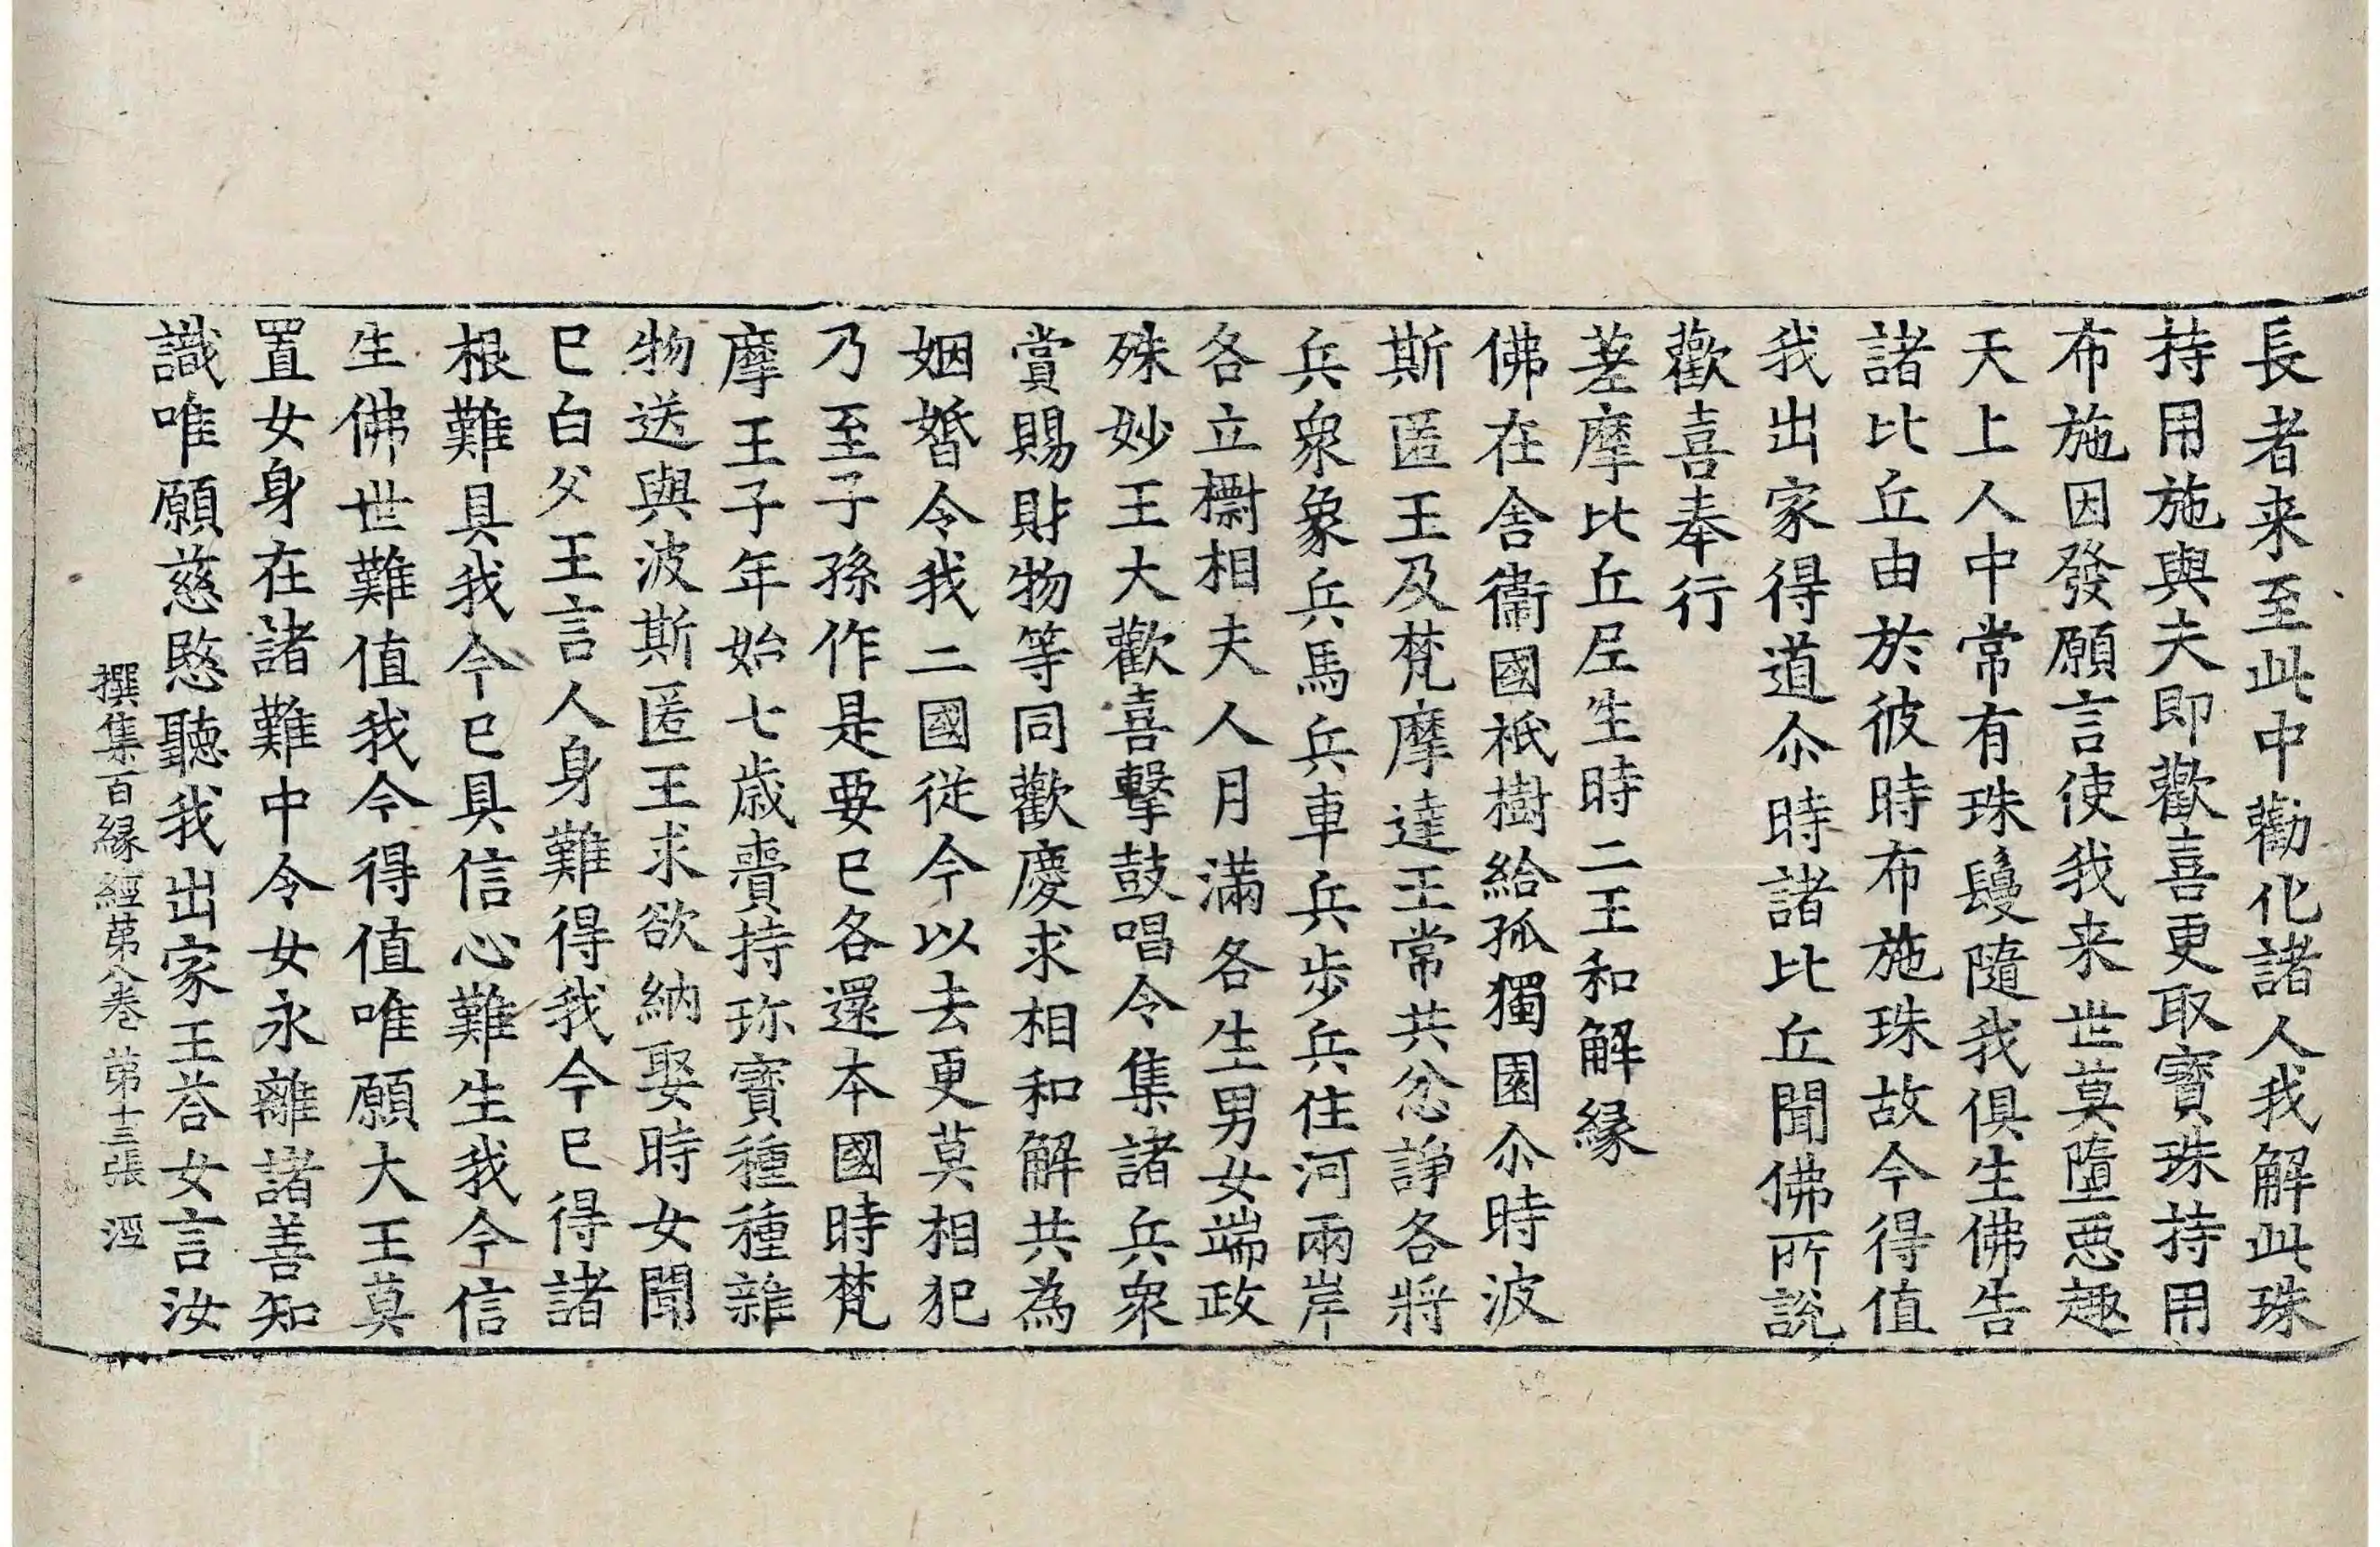 長者来至此中勸化諸人我解此珠
持用施與夫即歡喜更取寶珠持用
布施因發願言使我来世莫墮惡趣
天上人中常有珠鬘隨我俱生佛告
諸比丘由於彼時布施珠故今得值
我出家得道尒時諸比丘聞佛所說
歡喜奉行
差摩比丘尼生時二王和解緣
佛在舍衞國祇樹給孤獨園尒時波
斯匿王及梵摩達王常共忿諍各將
兵衆象兵馬兵車兵步兵住河兩岸
各立𣝔相夫人月滿各生男女端政
殊妙王大歡喜擊鼓唱令集諸兵衆
賞賜財物等同歡慶求相和解共為
姻婚令我二國從今以去更莫相犯
乃至子孫作是要已各還本國時梵
摩王子年始七歲賷持珎寶種種雜
物送與波斯匿王求欲納娶時女聞
已白父王言人身難得我今已得諸
根難具我今已具信心難生我今信
生佛世難值我今得值唯願大王莫
置女身在諸難中令女永離諸善知
識唯願慈愍聽我出家王荅女言汝
撰集百緣經第八卷 第十三張 涇